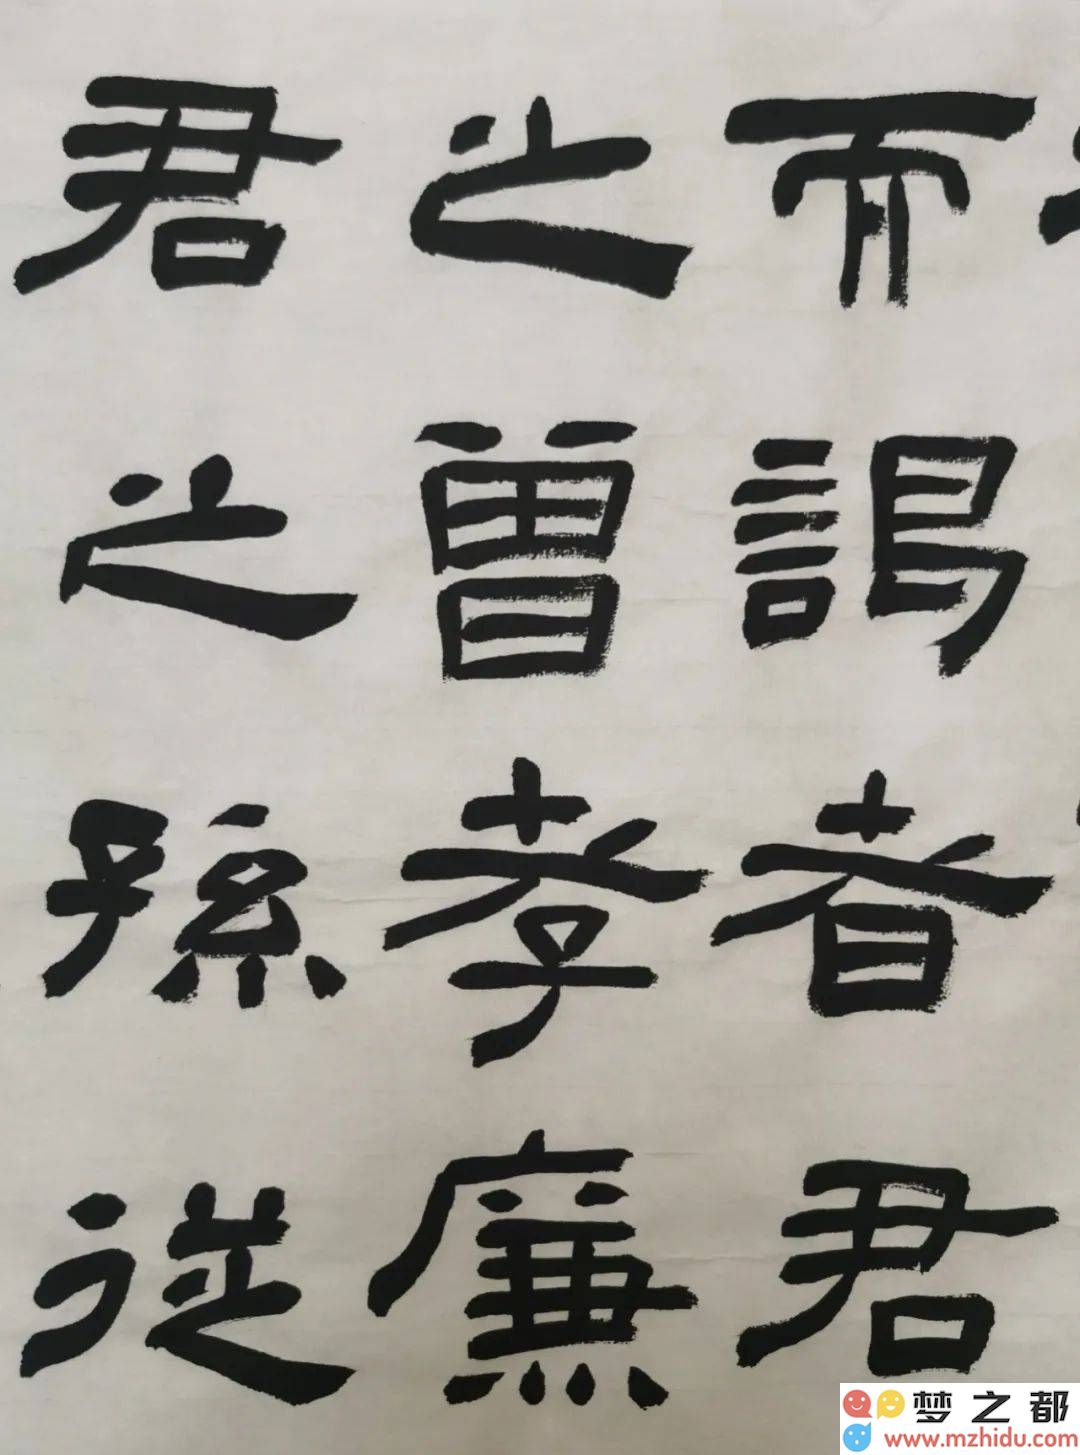 而謁者君
之曾孝廉
君之孫從
梦之都
www.mzhidu.com